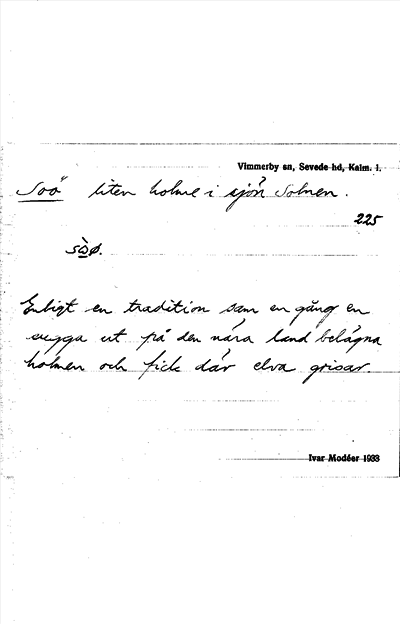 Vimmerby sn, Sevede hd, Kalm. l.
Soö liten holme i sjön Solnen.
225
sòø.
Enligt en tradition sam en gång en
sugga ut på den nära land belägna
holmen och fick där elva grisar.
Ivar Modéer 1933